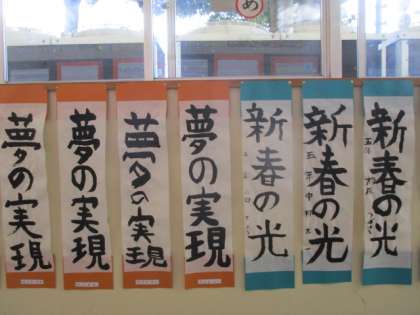 め
夢の実現
夢の実現
夢の実現
夢の実現
新春の光
新春の光
新春の光